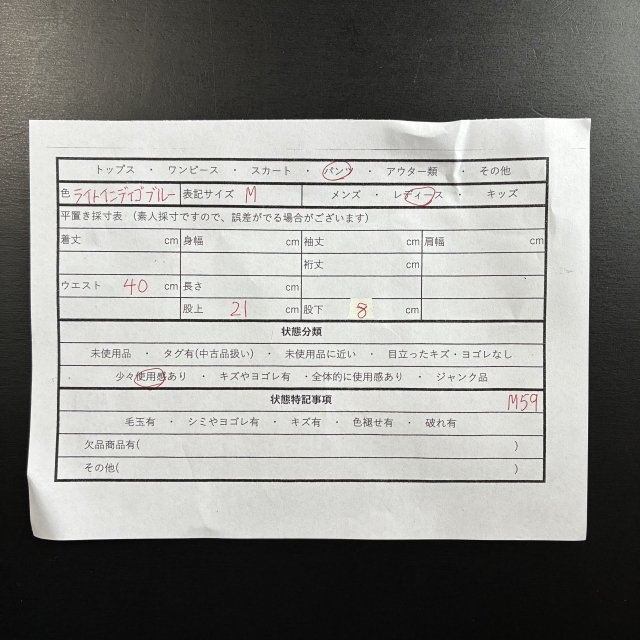 トップス ・ ワンピース ・ スカート ・ パンツ ・ アウター類 ・ その他
色 ライトインディゴブルー 表記サイズ M メンズ ・ レディース ・ キッズ
平置き採寸表 (素人採寸ですので、誤差がでる場合がございます)
着丈 cm 身幅 cm 袖丈 cm 肩幅 cm
裄丈 cm
ウエスト 40 cm 長さ cm
股上 21 cm 股下 8 cm
状態分類
未使用品 ・ タグ有(中古品扱い) ・ 未使用品に近い ・ 目立ったキズ・ヨゴレなし
・ 少々使用感あり ・ キズやヨゴレ有 ・全体的に使用感あり ・ ジャンク品
状態特記事項 M59
毛玉有 ・ シミやヨゴレ有 ・ キズ有 ・ 色褪せ有 ・ 破れ有
欠品商品有( )
その他( )